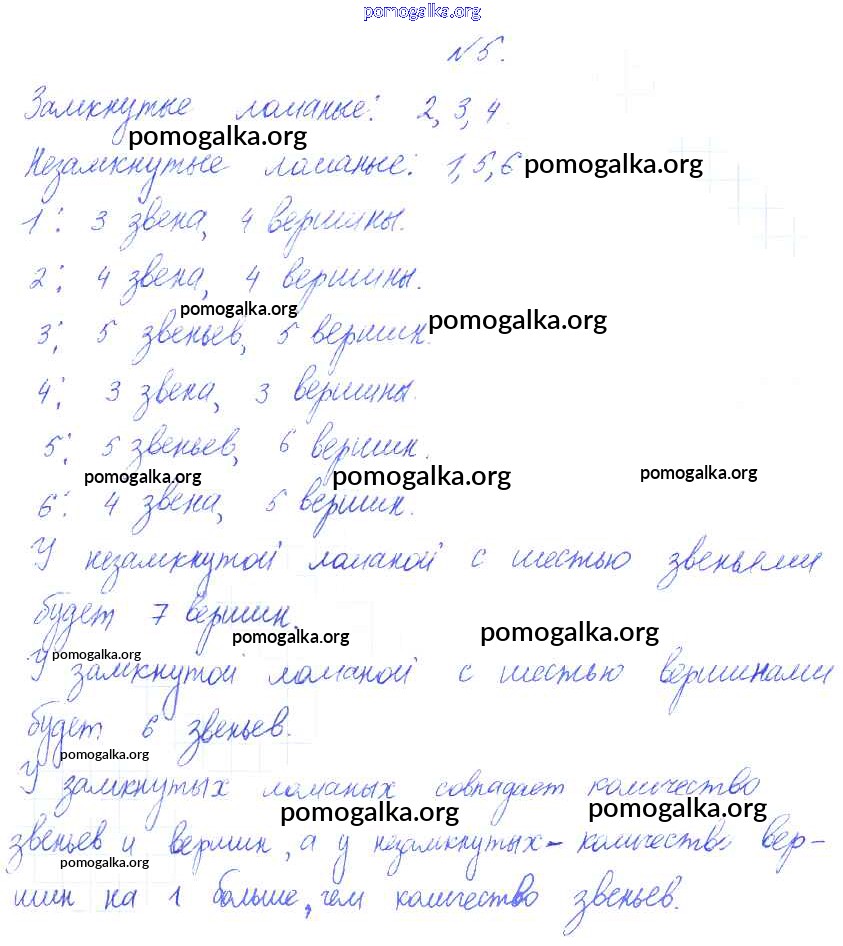 pomogalka.org
№5.
Замкнутые ломаные: 2, 3, 4.
pomogalka.org
Незамкнутые ломаные: 1, 5, 6 pomogalka.org
1: 3 звена, 4 вершины.
2: 4 звена, 4 вершины.
pomogalka.org
3: 5 звеньев, 5 вершин. pomogalka.org
4: 3 звена, 3 вершины.
5: 5 звеньев, 6 вершин.
pomogalka.org pomogalka.org pomogalka.org
6: 4 звена, 5 вершин.
У незамкнутой ломаной с шестью звеньями
будет 7 вершин.
pomogalka.org pomogalka.org
pomogalka.org
У замкнутой ломаной с шестью вершинами
будет 6 звеньев.
pomogalka.org
У замкнутых ломаных совпадает количество
pomogalka.org pomogalka.org
звеньев и вершин, а у незамкнутых - количество вер-
pomogalka.org
шин на 1 больше, чем количество звеньев.